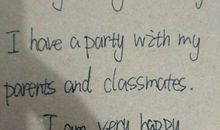 I have a party with my
parents and classmates.
I am very happy